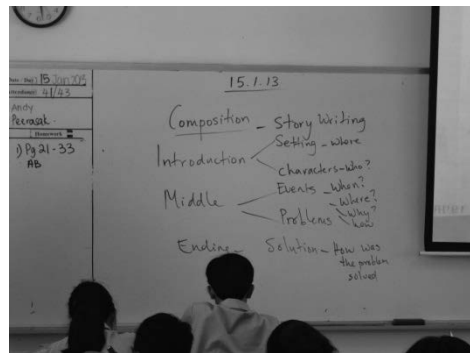 Date / Day: 15 Jan 2013
Attendance: 41/43
Andy
Peerasak.
Homework
1) Pg 21-33
AB
15.1.13
Composition - Story Writing
Introduction Setting - where
characters - who?
Middle Events - When?
Where?
Problems Why?
how
Ending - Solution - How was
the problem
solved